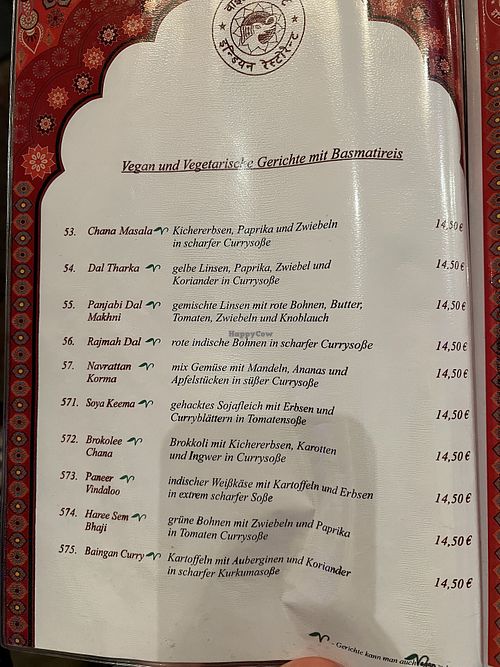 इन्डियन रेस्टोरेन्ट
Vegan und Vegetarische Gerichte mit Basmatireis
53. Chana Masala Kichererbsen, Paprika und Zwiebeln 14,50 €
in scharfer Currysoße
54. Dal Tharka gelbe Linsen, Paprika, Zwiebel und 14,50 €
Koriander in Currysoße
55. Panjabi Dal gemischte Linsen mit rote Bohnen, Butter, 14,50 €
Makhni Tomaten, Zwiebeln und Knoblauch
HappyCow
56. Rajmah Dal rote indische Bohnen in scharfer Currysoße 14,50 €
57. Navrattan mix Gemüse mit Mandeln, Ananas und 14,50 €
Korma Apfelstücken in süßer Currysoße
571. Soya Keema gehacktes Sojafleich mit Erbsen und 14,50 €
Curryblättern in Tomatensoße
572. Brokolee Brokkoli mit Kichererbsen, Karotten 14,50 €
Chana und Ingwer in Currysoße
573. Paneer indischer Weißkäse mit Kartoffeln und Erbsen 14,50 €
Vindaloo in extrem scharfer Soße
574. Haree Sem grüne Bohnen mit Zwiebeln und Paprika 14,50 €
Bhaji in Tomaten Currysoße
575. Baingan Curry Kartoffeln mit Auberginen und Koriander 14,50 €
in scharfer Kurkumasoße
- Gerichte kann man auch